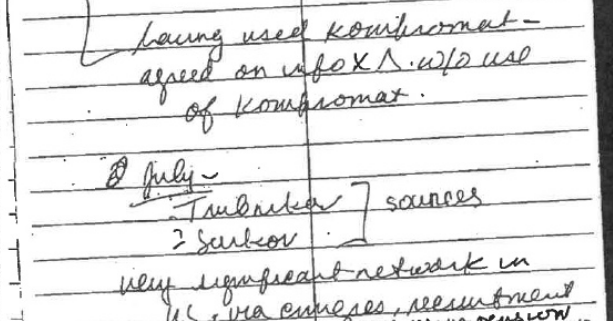 having used kompromat -
agreed on info X Δ. w/o use
of kompromat.
July -
. Trubnikov ] sources
: Surkov
very significant network in
US, via emigres, recruitment